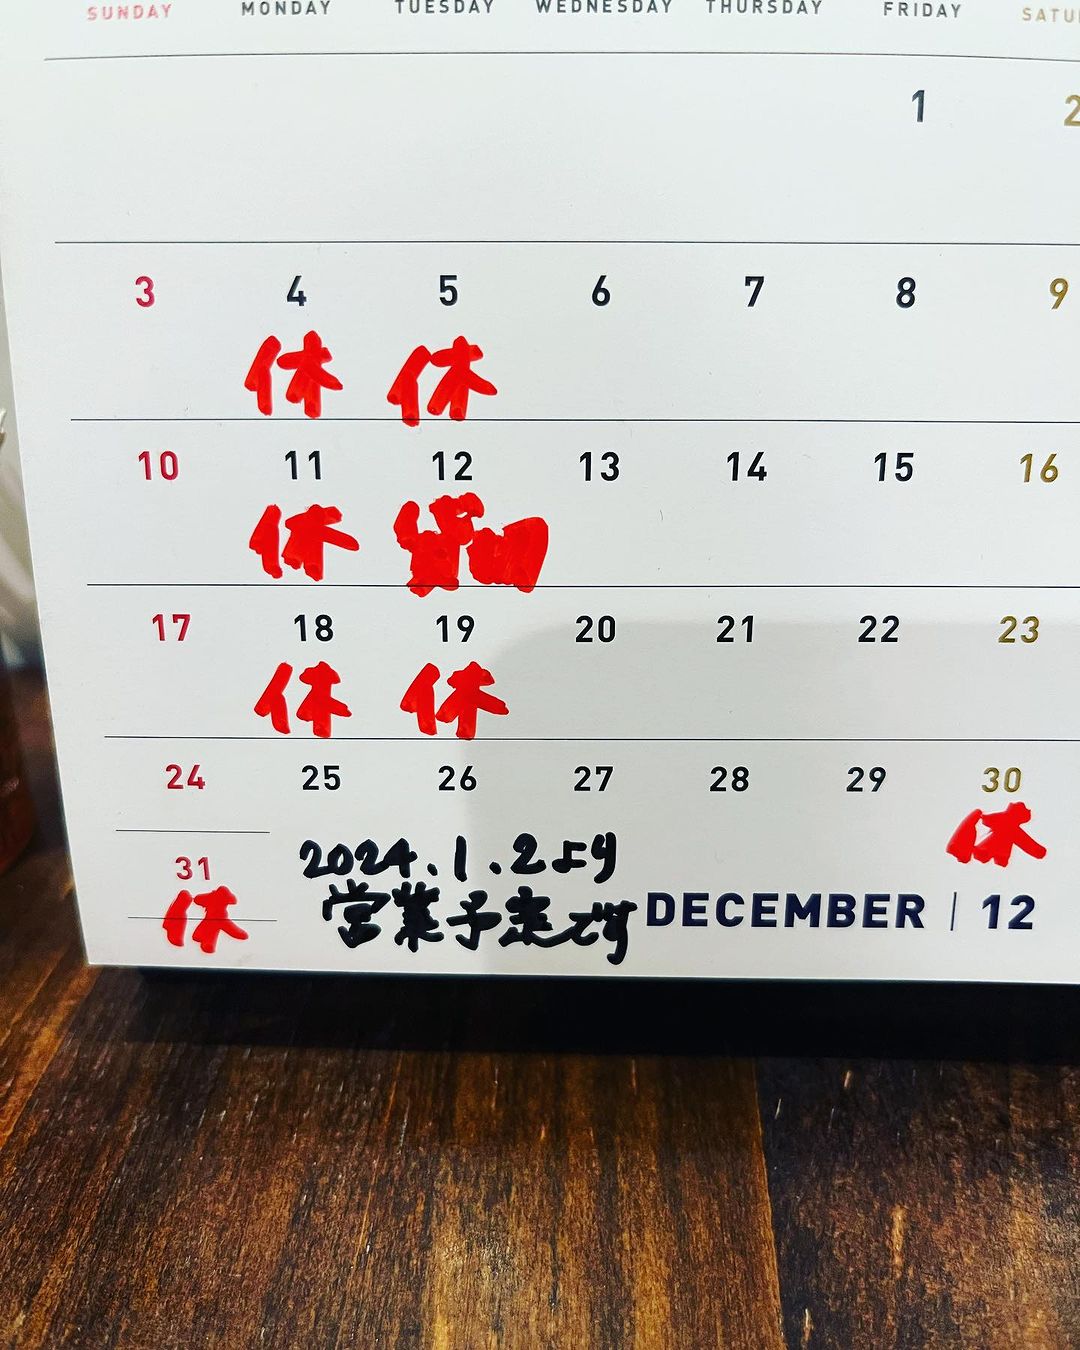 SUNDAY MONDAY TUESDAY WEDNESDAY THURSDAY FRIDAY SATU
1 2
3 4 5 6 7 8 9
休 休
10 11 12 13 14 15 16
休
17 18 19 20 21 22 23
休 休
24 25 26 27 28 29 30
休
31
休
2024.1.2より
営業予定です
DECEMBER | 12